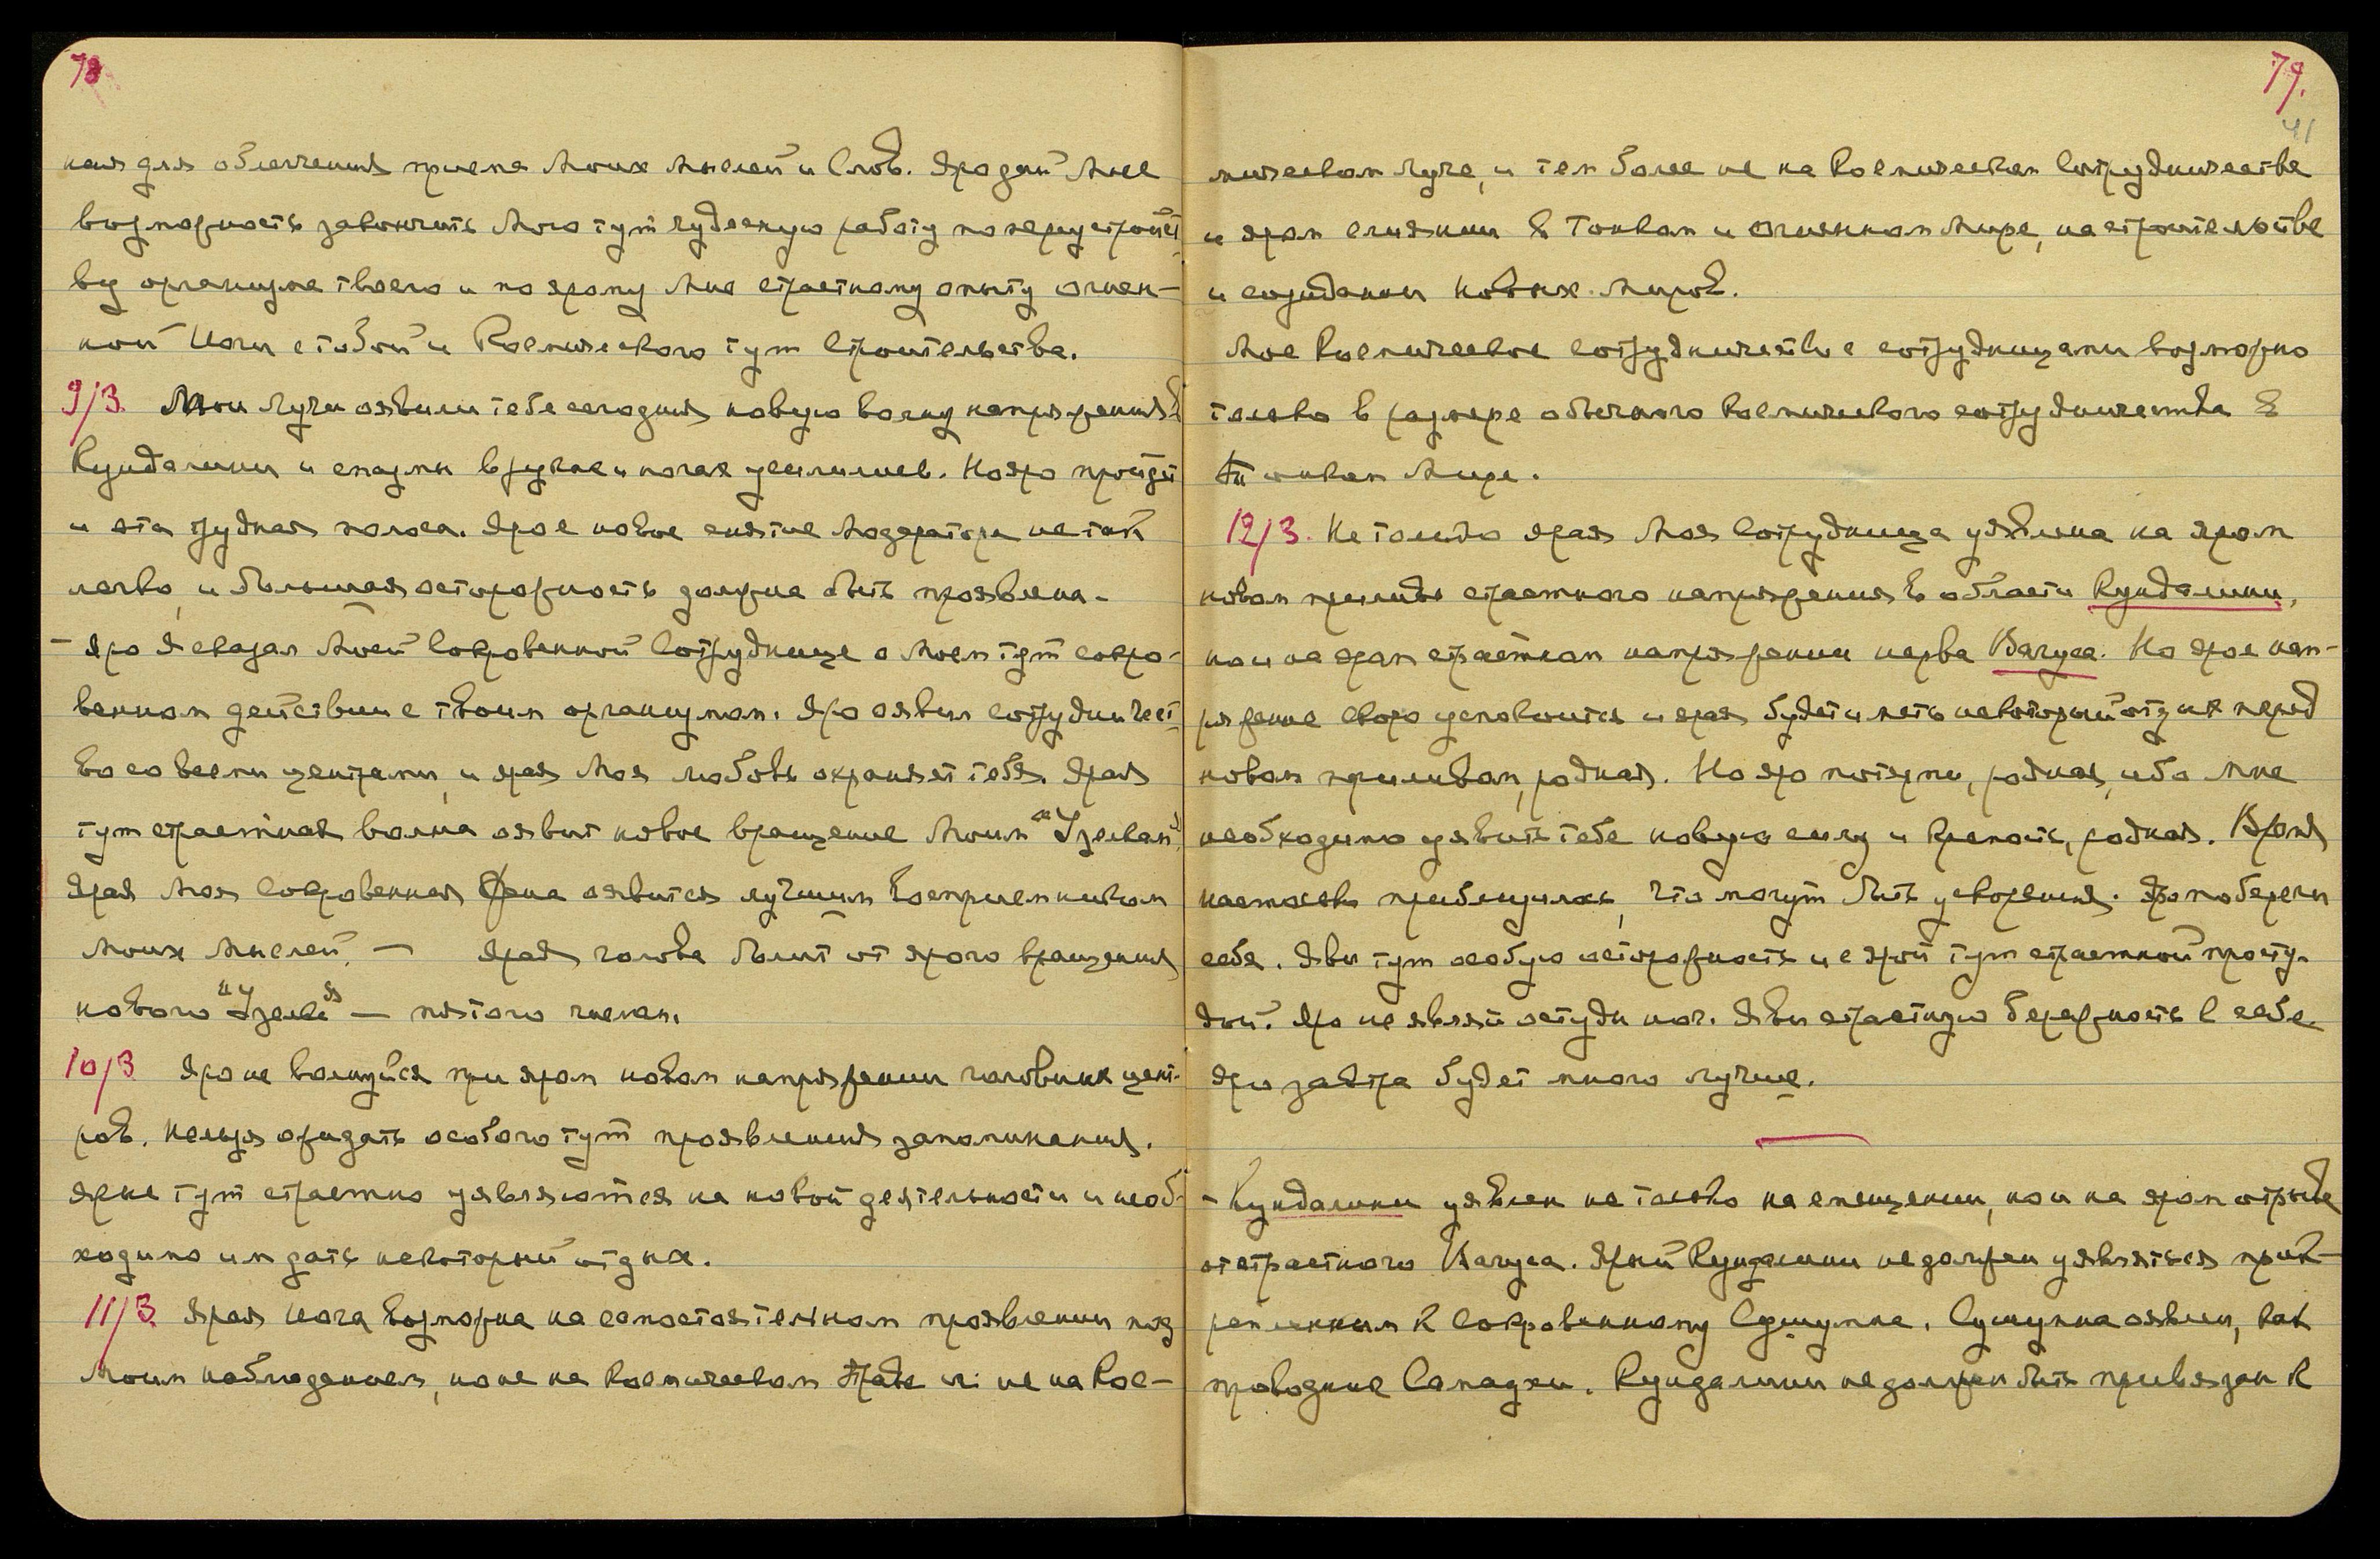 78
ная для облегчения приема Моих Мыслей и Слов. Яро дай Мне
возможность закончить Мою тут чудесную работу по переустройст-
ву организма твоего и по ярому Мне страстному опыту огнен-
ной Йоги с тобой и Космического тут Строительства.
9/3. Мои Лучи оявили тебе сегодня новую волну напряжения в
Кундалини и спазмы в руках и ногах усилились. Но яро пройдет
и эта трудная полоса. Ярое новое снятие Модератора не так
легко, и большая осторожность должна быть проявлена.
– Яро Я сказал Моей Сокровенной Сотруднице о Моем тут сокро-
венном действии с твоим организмом. Яро оявил сотрудничест-
во со всеми центрами, и ярая Моя любовь охраняет тебя. Ярая
тут страстная волна оявит новое вращение Моим "Узелкам".
Ярая Моя Сокровенная Жена оявится лучшим Восприемником
Моих Мыслей. — Ярая голова болит от ярого вращения
нового "Узелка" — пятого числом.
10/3 Яро не волнуйся при яром новом напряжении головных цент-
ров. Нельзя ожидать особого тут проявления запоминания.
Ярые тут страстно уявляются на новой деятельности и необ-
ходимо им дать некоторый отдых.
11/3. Ярая Йога возможна на самостоятельном проявлении под
Моим наблюдением, но не на Космическом Праве и не на Кос-
79.
41
мическом Луче, и тем более не на Космическом Сотрудничестве
и яром слиянии в Тонком и Огненном Мире, на строительстве
и созидании Новых Миров.
Мое Космическое сотрудничество с сотрудницами возможно
только в размере обычного Космического сотрудничества в
Тонком Мире.
12/3. Не только ярая Моя Сотрудница уявлена на яром
новом приливе страстного напряжения в области Кундалини,
но и на яром страстном напряжении нерва Вагуса. Но ярое нап-
ряжение скоро успокоится и ярая будет иметь некоторый отдых перед
новым приливом, родная. Но яро потерпи, родная, ибо Мне
необходимо уявить тебе новую силу и крепость, родная. Время
настолько приблизилось, что могут быть ускорения. Яро побереги
себя. Яви тут особую осторожность и с ярой тут страстной просту-
дой. Яро не являй остуды ног. Яви страстную бережность к себе.
Яро завтра будет много лучше.
- Кундалини уявлен не только на смещении, но и на яром отрыве
от страстного Вагуса. Ярый Кундалини не должен уявляться прик-
репленным к Сокровенному Сушумна. Сушумна оявлен, как
проводник Самадхи. Кундалини не должен быть привязан к